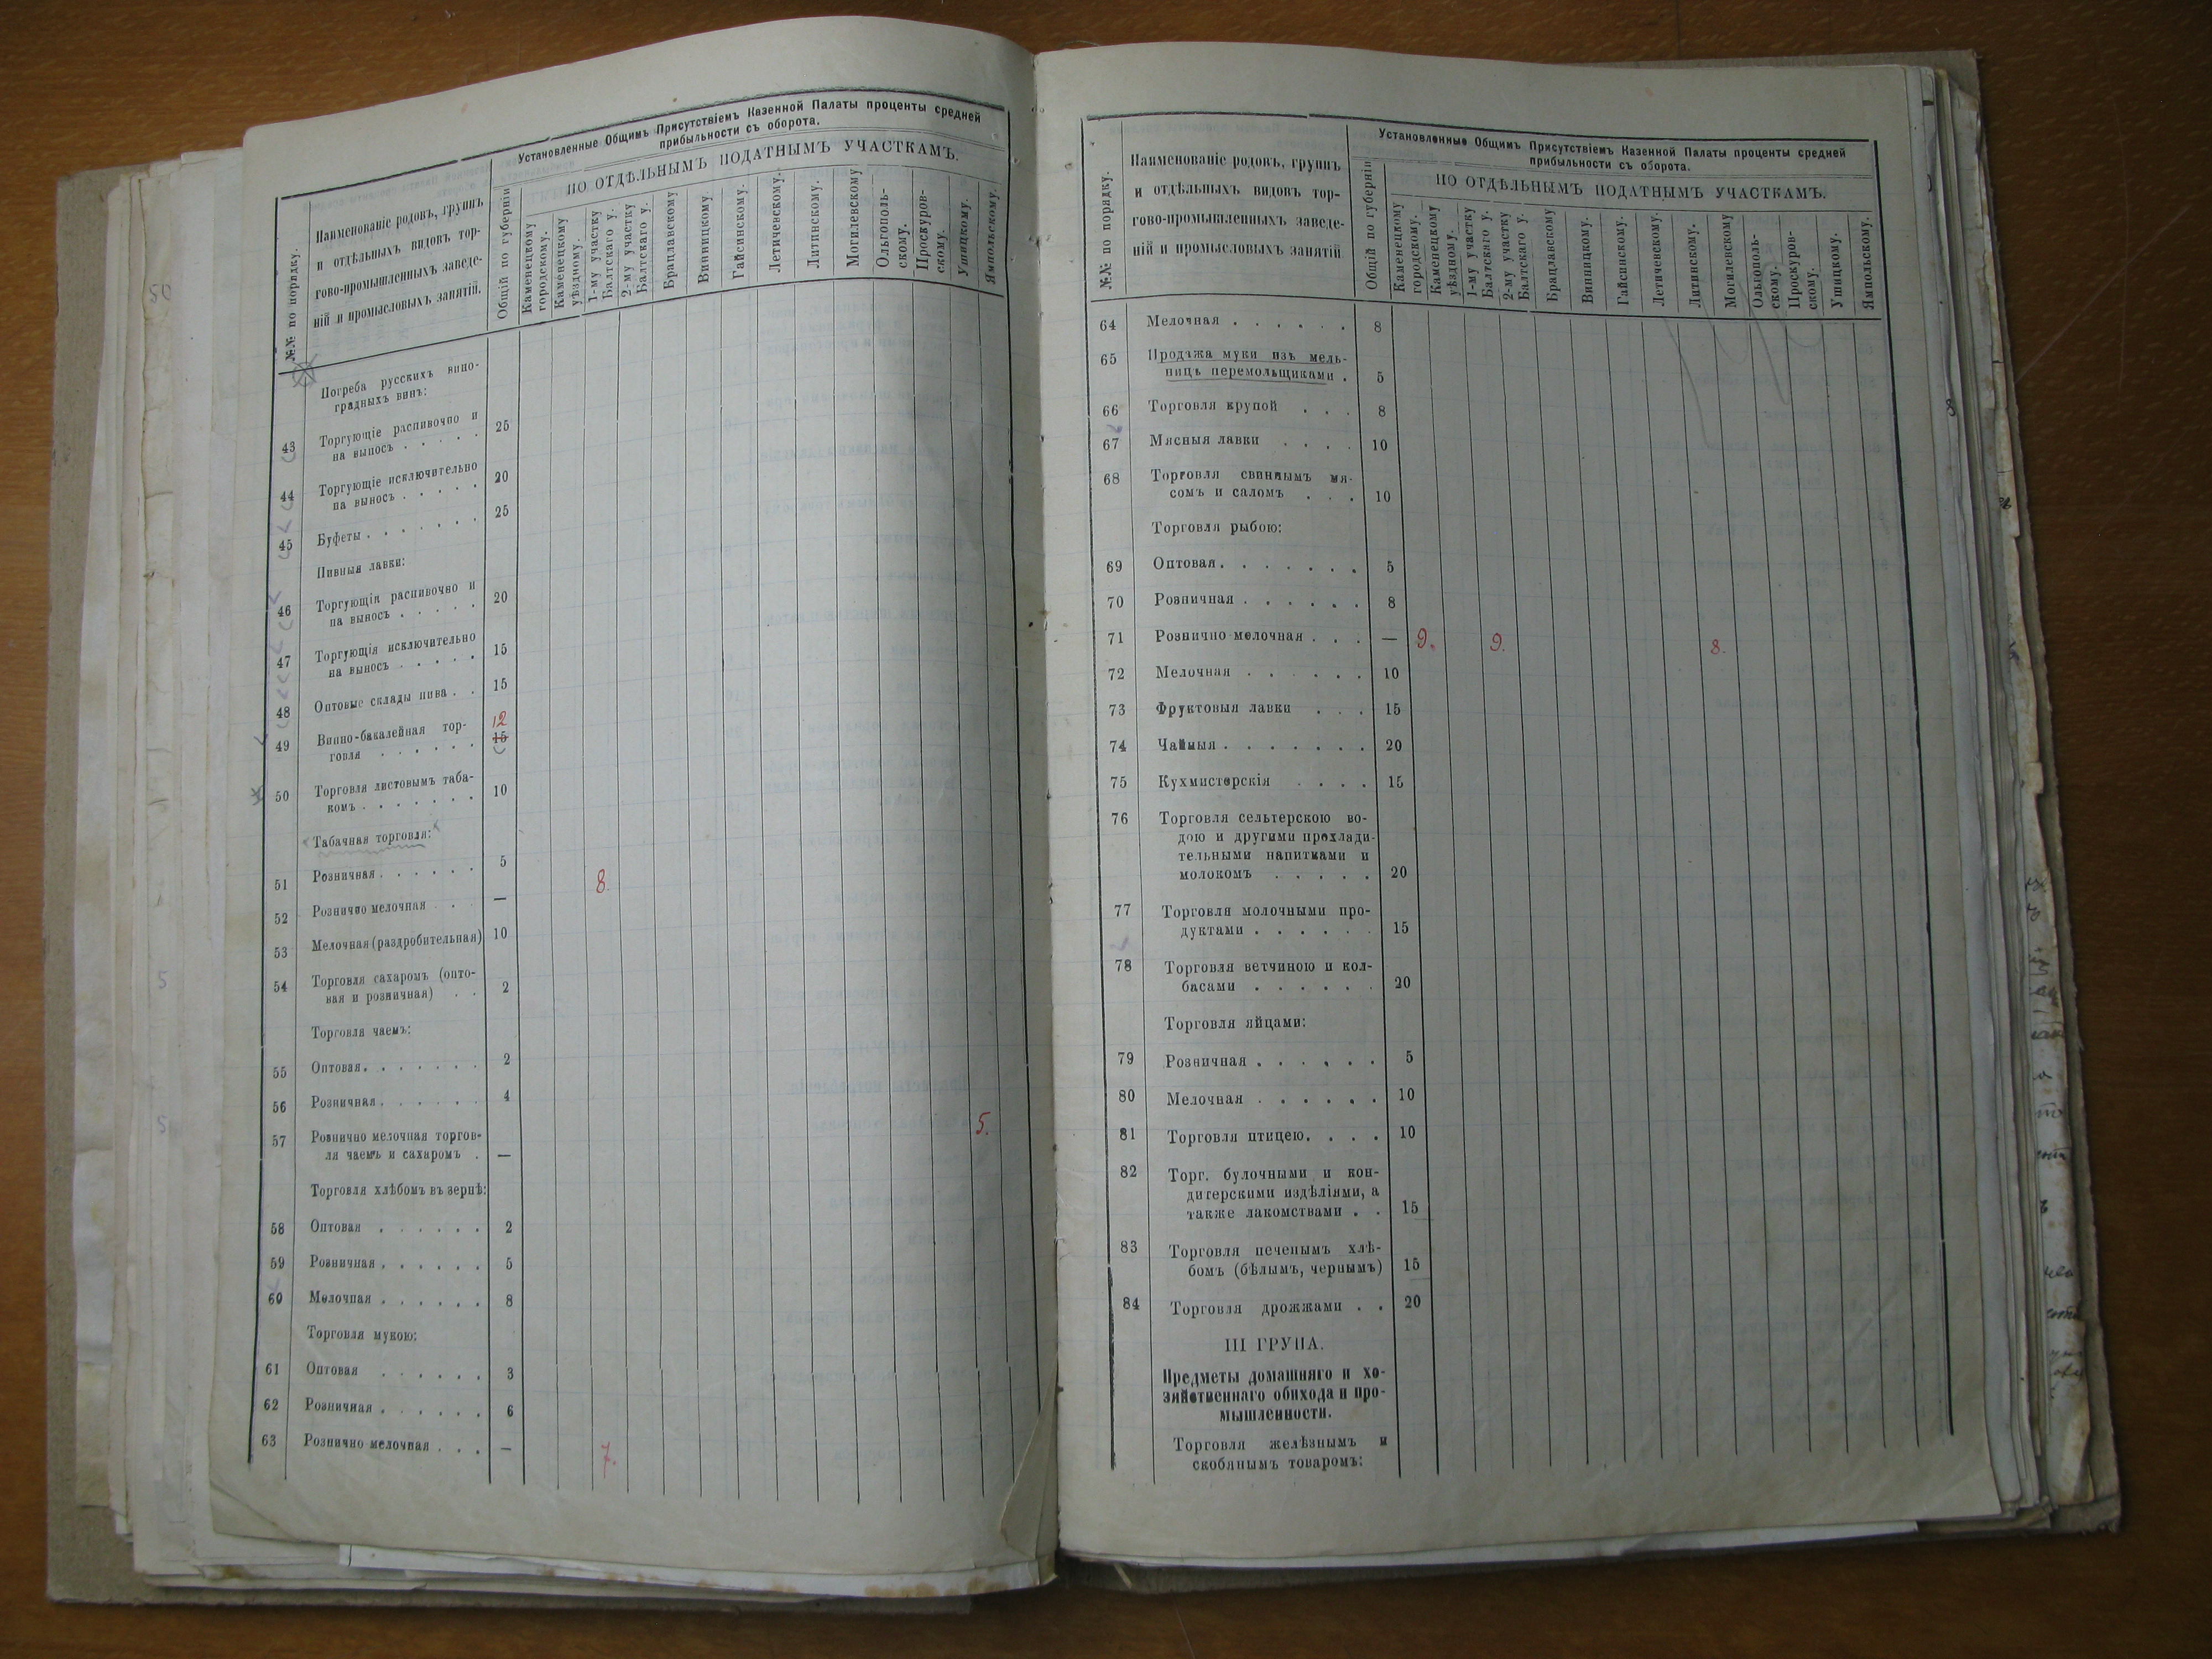 Установленные Общимъ Присутствіемъ Казенной Палаты проценты средней
прибыльности съ оборота.
ПО ОТДѢЛЬНЫМЪ ПОДАТНЫМЪ УЧАСТКАМЪ.
№№ по порядку.
Наименованіе родовъ, группъ
и отдѣльныхъ видовъ тор-
гово-промышленныхъ заведе-
ній и промысловыхъ занятій.
Общій по губерніи
Каменецкому
городскому.
Каменецкому
уѣздному.
1-му участку
Балтскаго у.
2-му участку
Балтскаго у.
Брацлавскому
Винницкому.
Гайсинскому.
Летичевскому.
Литинскому.
Могилевскому
Ольгополь-
скому.
Проскуров-
скому.
Ушицкому.
Ямпольскому.
Погреба русскихъ вино-
градныхъ винъ:
43 Торгующіе распивочно и
на выносъ . . . . . 25
44 Торгующіе исключительно
на выносъ . . . . . 20
45 Буфеты . . . . . . . 25
Пивныя лавки:
46 Торгующія распивочно и
на выносъ . . . . . 20
47 Торгующія исключительно
на выносъ . . . . . 15
48 Оптовые склады пива . . 15
49 Винно-бакалейная тор- 12
говля . . . . . . 15
50 Торговля листовымъ таба-
комъ . . . . . . . 10
Табачная торговля:
51 Розничная . . . . . . 5
52 Рознично мелочная . . . — 8.
53 Мелочная (раздробительная) 10
54 Торговля сахаромъ (опто-
вая и розничная) . . 2
Торговля чаемъ:
55 Оптовая . . . . . . . 2
56 Розничная . . . . . . 4
57 Рознично мелочная торгов-
ля чаемъ и сахаромъ . — 5.
Торговля хлѣбомъ въ зернѣ:
58 Оптовая . . . . . . 2
59 Розничная . . . . . . 5
60 Мелочная . . . . . . 8
Торговля мукою:
61 Оптовая . . . . . . 3
62 Розничная . . . . . . 6
63 Рознично мелочная . . . — 7.
Установленные Общимъ Присутствіемъ Казенной Палаты проценты средней
прибыльности съ оборота.
ПО ОТДѢЛЬНЫМЪ ПОДАТНЫМЪ УЧАСТКАМЪ.
№№ по порядку.
Наименованіе родовъ, группъ
и отдѣльныхъ видовъ тор-
гово-промышленныхъ заведе-
ній и промысловыхъ занятій
Общій по губерніи
Каменецкому
городскому.
Каменецкому
уѣздному.
1-му участку
Балтскаго у.
2-му участку
Балтскаго у.
Брацлавскому
Винницкому.
Гайсинскому.
Летичевскому.
Литинскому.
Могилевскому
Ольгополь-
скому.
Проскуров-
скому.
Ушицкому.
Ямпольскому.
64 Мелочная . . . . . . 8
65 Продажа муки изъ мель-
ницъ перемольщиками . 5
66 Торговля крупой . . . 8
67 Мясныя лавки . . . . 10
68 Торговля свинымъ мя-
сомъ и саломъ . . . 10
Торговля рыбою:
69 Оптовая . . . . . . . 5
70 Розничная . . . . . . 8
71 Рознично мелочная . . . — 9. 9. 8.
72 Мелочная . . . . . . 10
73 Фруктовыя лавки . . . 15
74 Чайныя . . . . . . . 20
75 Кухмистерскія . . . . 15
76 Торговля сельтерскою во-
дою и другими прохлади-
тельными напитками и
молокомъ . . . . . 20
77 Торговля молочными про-
дуктами . . . . . . 15
78 Торговля ветчиною и кол-
басами . . . . . . 20
Торговля яйцами:
79 Розничная . . . . . . 5
80 Мелочная . . . . . . 10
81 Торговля птицею . . . . 10
82 Торг. булочными и кон-
дитерскими издѣліями, а
также лакомствами . . 15
83 Торговля печенымъ хлѣ-
бомъ (бѣлымъ, чернымъ) 15
84 Торговля дрожжами . . 20
III ГРУПА.
Предметы домашняго и хо-
зяйственнаго обихода и про-
мышленности.
Торговля желѣзнымъ и
скобянымъ товаромъ: